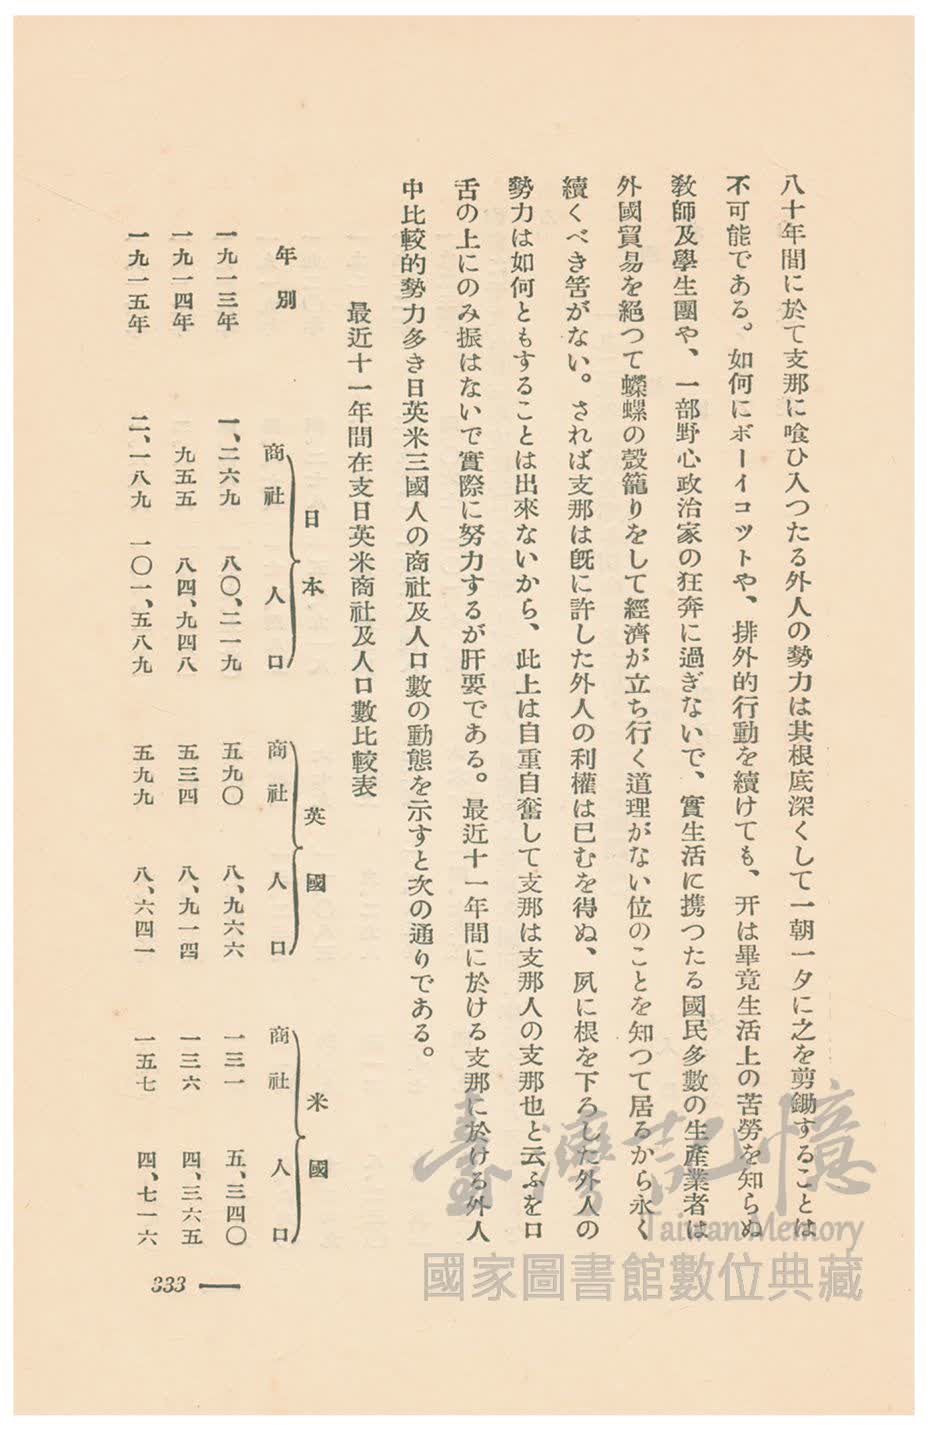 八十年間に於て支那に喰ひ入つたる外人の勢力は其根底深くして一朝一夕に之を剪鋤することは
不可能である。如何にボーイコツトや、排外的行動を續けても、开は畢竟生活上の苦勞を知らぬ
敎師及學生團や、一部野心政治家の狂奔に過ぎないで、實生活に携つたる國民多數の生產業者は
外國貿易を絕つて蠑螺の殼籠りをして經濟が立ち行く道理がない位のことを知つて居るから永く
續くべき筈がない。されば支那は旣に許した外人の利權は已むを得ぬ、夙に根を下ろした外人の
勢力は如何ともすることは出來ないから、此上は自重自奮して支那は支那人の支那也と云ふを口
舌の上にのみ振はないで實際に努力するが肝要である。最近十一年間に於ける支那に於ける外人
中比較的勢力多き日英米三國人の商社及人口數の動態を示すと次の通りである。
最近十一年間在支日英米商社及人口數比較表
日本 英國 米國
年別 商社 人口 商社 人口 商社 人口
一九一三年 一、二六九 八〇、二一九 五九〇 八、九六六 一三一 五、三四〇
一九一四年 九五五 八四、九四八 五三四 八、九一四 一三六 四、三六五
一九一五年 二、一八九 一〇一、五八九 五九九 八、六四一 一五七 四、七一六
333
臺灣記憶
Taiwan Memory
國家圖書館數位典藏